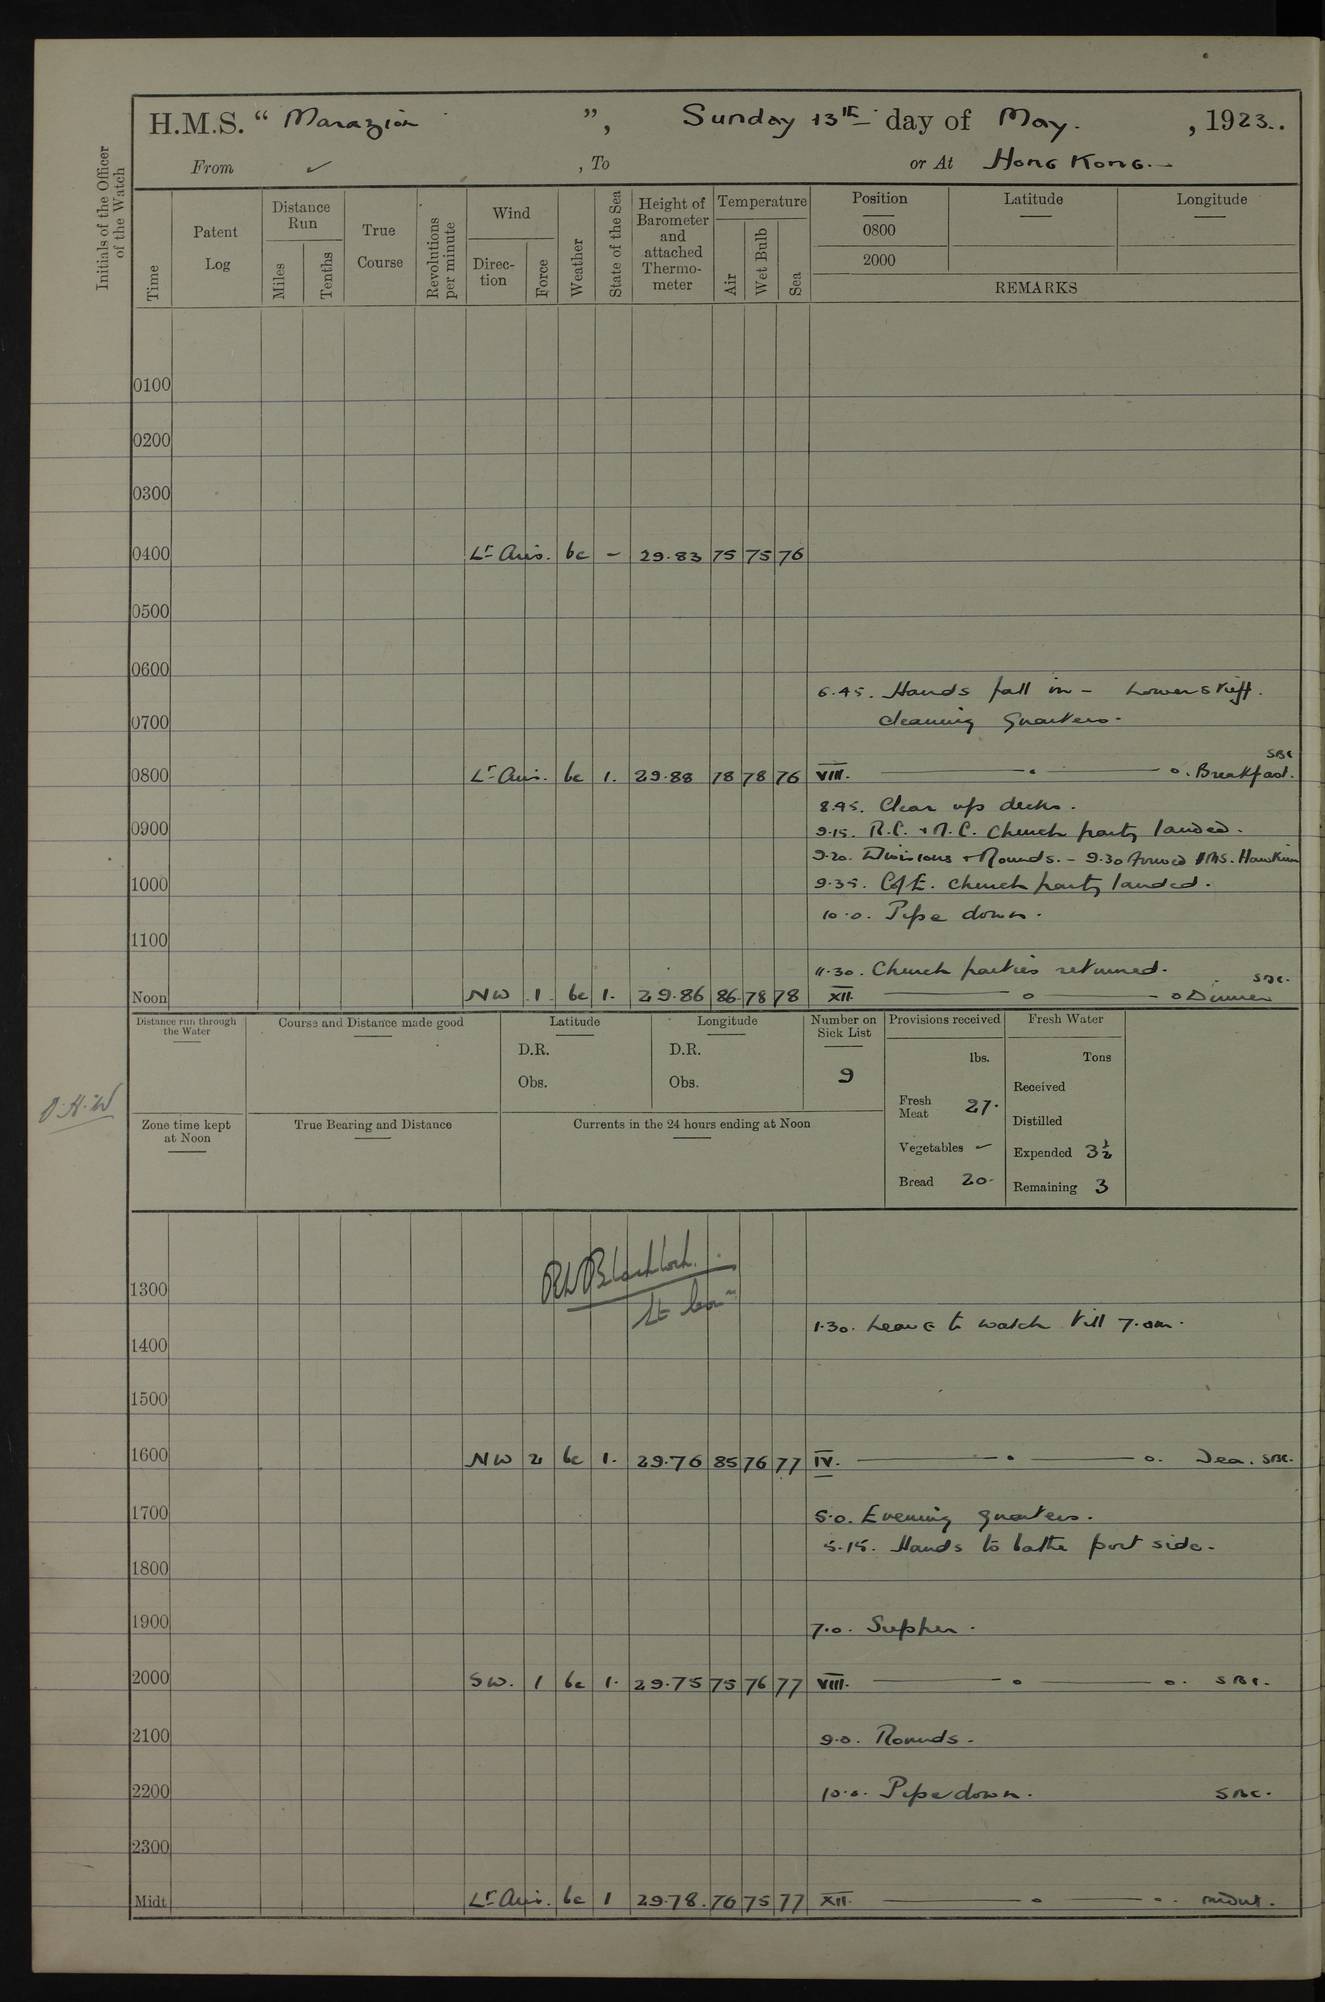 H.M.S. " Marazion ", Sunday 13th day of May. , 1923..
From ✓ , To or At Hong Kong.-
Initials of the Officer of the Watch
Time
Patent Log
Distance Run
Miles
Tenths
True Course
Revolutions per minute
Wind
Direc-tion
Force
Weather
State of the Sea
Height of Barometer and attached Thermo-meter
Temperature
Air
Wet Bulb
Sea
Position
0800
2000
Latitude
Longitude
REMARKS
0100
0200
0300
0400 Lt Airs. bc - 29.83 75 75 76
0500
0600
6.45. Hands fall in - Lower stuff.
0700 cleaning Quarters.
SBC
0800 Lt Airs. bc 1. 29.88 78 78 76 VIII. o o. Breakfast.
8.45. Clear up decks.
0900 9.15. R.C. + N.C. Church party landed.
9.20. Divisions + Rounds. - 9.30 HMS. Hawkins
1000 9.35. C of E. church party landed.
10.0. Pipe down.
1100
11.30. Church parties returned. SBC.
Noon NW 1. bc 1. 29.86 86 78 78 XII. o o Dinner
Distance run through the Water
Course and Distance made good
Latitude
D.R.
Obs.
Longitude
D.R.
Obs.
Number on Sick List
9
Provisions received
lbs.
Fresh Meat 27.
Vegetables -
Bread 20.
Fresh Water
Tons
Received
Distilled
Expended 3½
Remaining 3
Zone time kept at Noon
True Bearing and Distance
Currents in the 24 hours ending at Noon
1300
Lt Com
1.30. Leave to watch till 7.am.
1400
1500
1600 NW 2 bc 1. 29.76 85 76 77 IV. o o. Tea. SBC.
1700 5.0. Evening quarters.
5.15. Hands to bathe port side.
1800
1900 7.0. Supper.
2000 SW. 1 bc 1. 29.75 75 76 77 VIII. o o. SBC.
2100 9.0. Rounds.
2200 10.0. Pipe down. SBC.
2300
Midt Lt Airs. bc 1 29.78. 76 75 77 XII. o o.